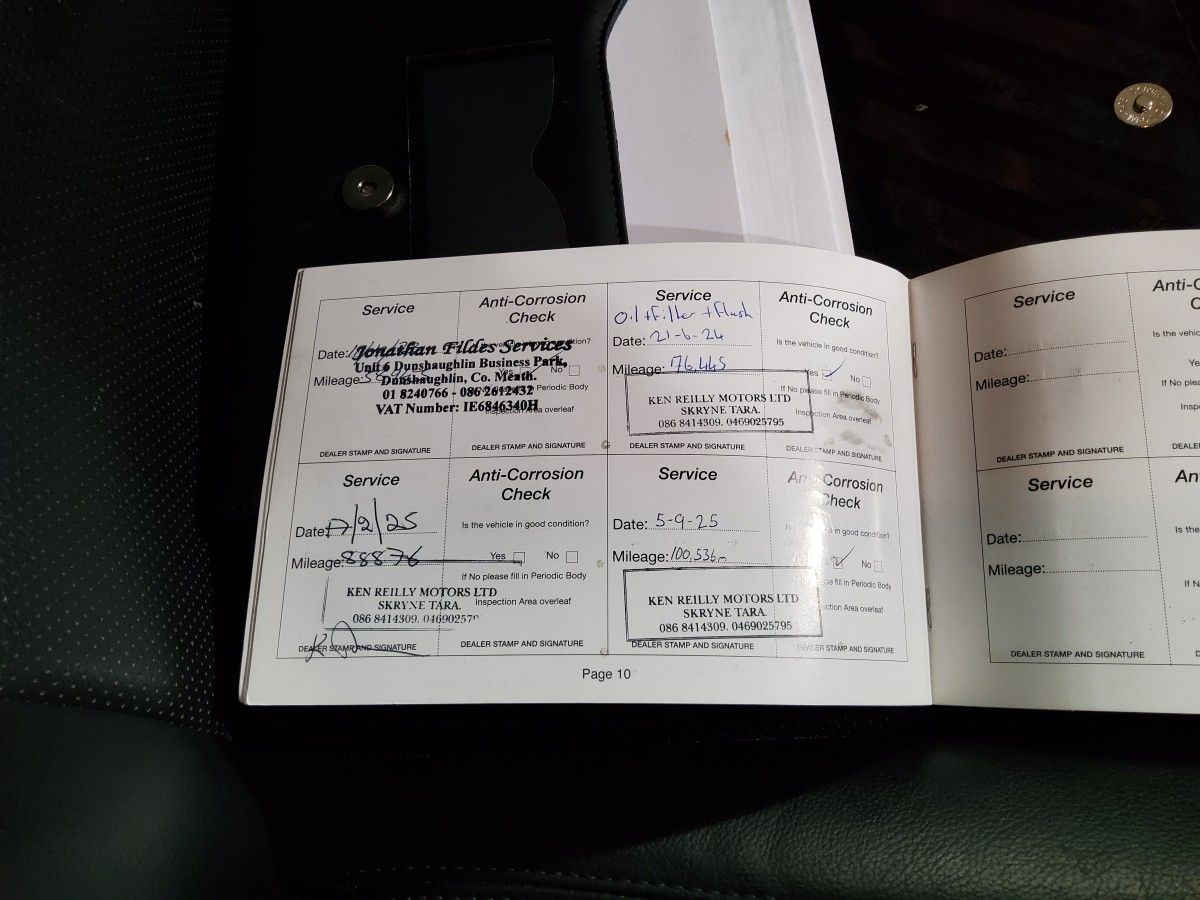 Service
Anti-Corrosion
Check
Date:
Mileage:
Jonathan Fildes Services
Unit 6 Dunshaughlin Business Park,
Dunshaughlin, Co. Meath.
01 8240766 - 086 2612432
VAT Number: IE6846340H
No
Area overleaf
DEALER STAMP AND SIGNATURE
Service
Oil + Filter + Flush
Date: 21-6-24
Mileage: 76,445
KEN REILLY MOTORS LTD
SKRYNE TARA.
086 8414309. 0469025795
DEALER STAMP AND SIGNATURE
Anti-Corrosion
Check
Is the vehicle in good condition?
Yes No
If No please fill in Periodic Body
Inspection Area overleaf
DEALER STAMP AND SIGNATURE
Service
Date: 17/2/25
Mileage: 88876
KEN REILLY MOTORS LTD
SKRYNE TARA.
086 8414309. 0469025795
DEALER STAMP AND SIGNATURE
Anti-Corrosion
Check
Is the vehicle in good condition?
Yes No
If No please fill in Periodic Body
Inspection Area overleaf
DEALER STAMP AND SIGNATURE
Service
Date: 5-9-25
Mileage: 100,536m
KEN REILLY MOTORS LTD
SKRYNE TARA.
086 8414309. 0469025795
DEALER STAMP AND SIGNATURE
Anti-Corrosion
Check
in good condition?
No
fill in Periodic Body
Area overleaf
DEALER STAMP AND SIGNATURE
Page 10
Service
Date:
Mileage:
DEALER STAMP AND SIGNATURE
Is the vehicle
Yes
If No please
DEALER
Service
Date:
Mileage:
DEALER STAMP AND SIGNATURE
Is the